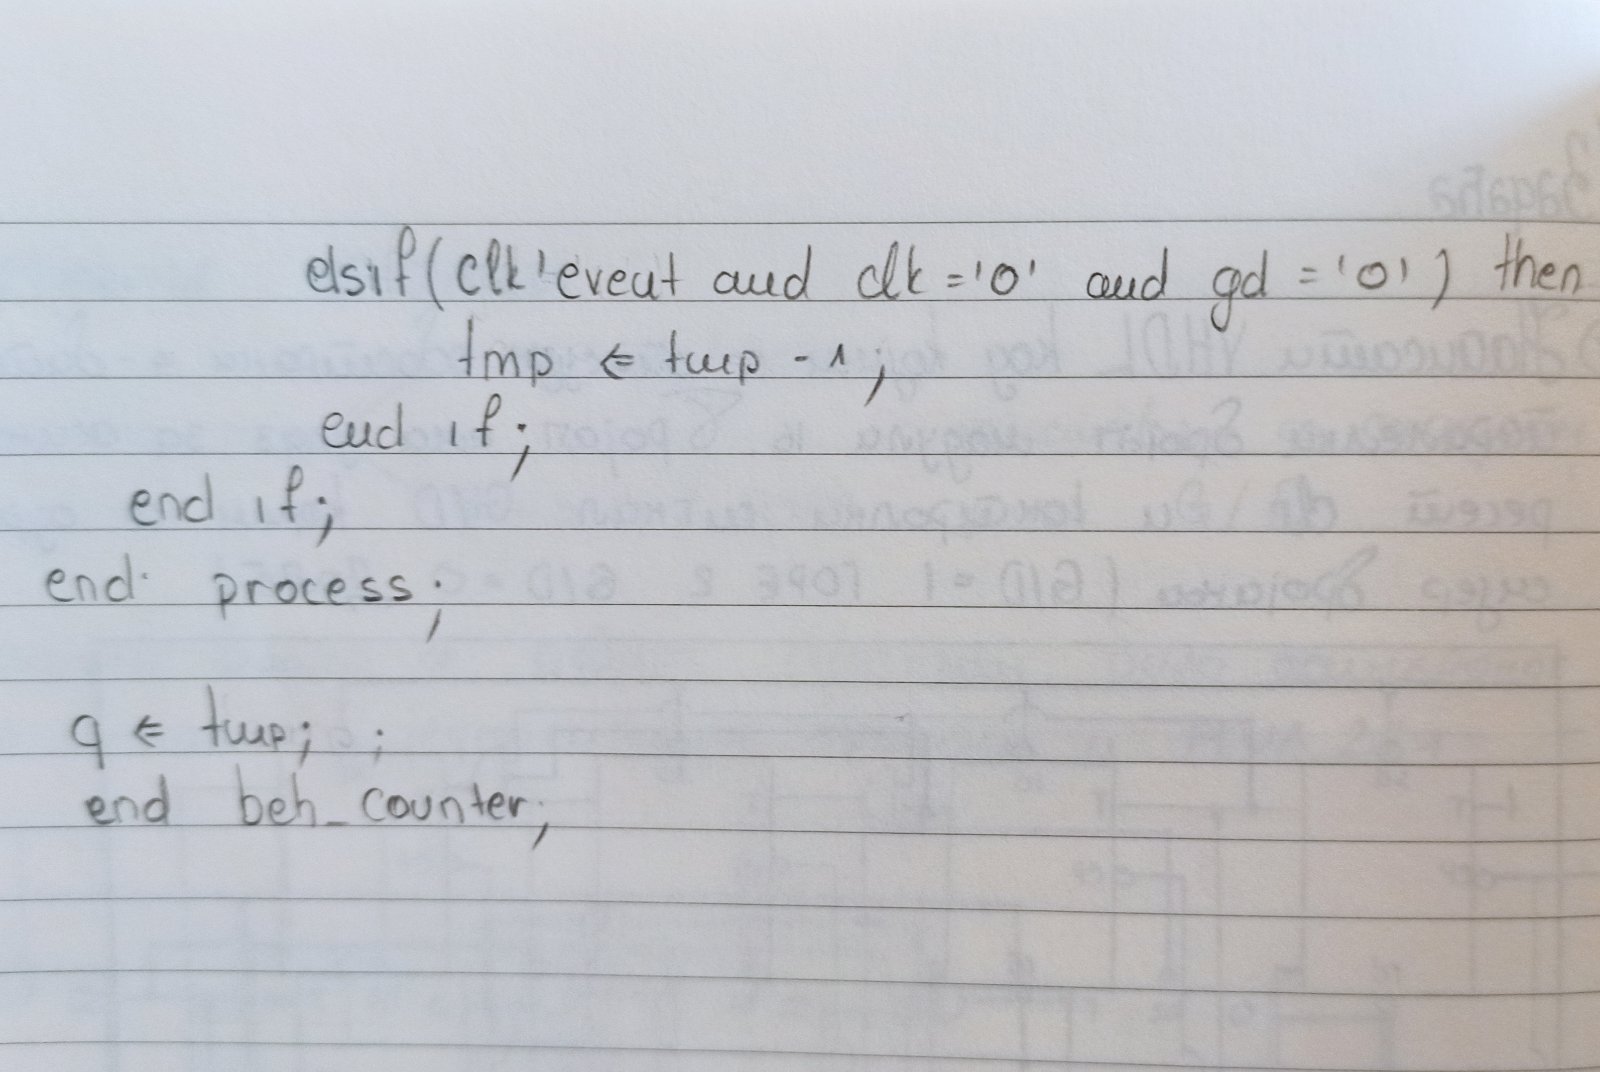 elsif(clk'event and clk='0' and gd='0') then
tmp <= tmp -1;
end if;
end if;
end process;
q <= tmp; ;
end beh_counter;